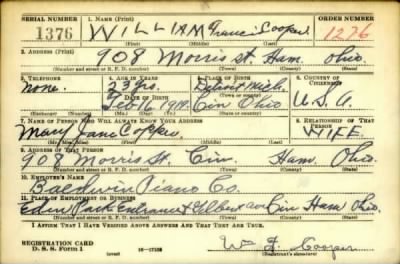 SERIAL NUMBER 1. NAME (Print) ORDER NUMBER
1376 WILLIAM Francis Cooper 1276
(First) (Middle) (Last)
2. ADDRESS (Print)
908 Morris St. Ham. Ohio.
(Number and street or R. F. D. number) (Town) (County) (State)
3. TELEPHONE 4. AGE IN YEARS 5. PLACE OF BIRTH 6. COUNTRY OF CITIZENSHIP
none. 23 yrs. Detroit Mich.
DATE OF BIRTH
Feb 16 1917. Cin Ohio U.S.A.
(Exchange) (Number) (Mo.) (Day) (Yr.) (Town or county) (State or country)
7. NAME OF PERSON WHO WILL ALWAYS KNOW YOUR ADDRESS 8. RELATIONSHIP OF THAT PERSON
Mary Jane Cooper WIFE.
(Mr., Mrs., Miss) (First) (Middle) (Last)
9. ADDRESS OF THAT PERSON
908 Morris St. Cin. Ham. Ohio.
(Number and street or R. F. D. number) (Town) (County) (State)
10. EMPLOYER'S NAME
Baldwin Piano Co.
11. PLACE OF EMPLOYMENT OR BUSINESS
Eden Park Entrance & Gilbert ave Cin Ham Ohio.
(Number and street or R. F. D. number) (Town) (County) (State)
I AFFIRM THAT I HAVE VERIFIED ABOVE ANSWERS AND THAT THEY ARE TRUE.
REGISTRATION CARD
D. S. S. Form 1 (over) Wm F. Cooper
(Registrant's signature)